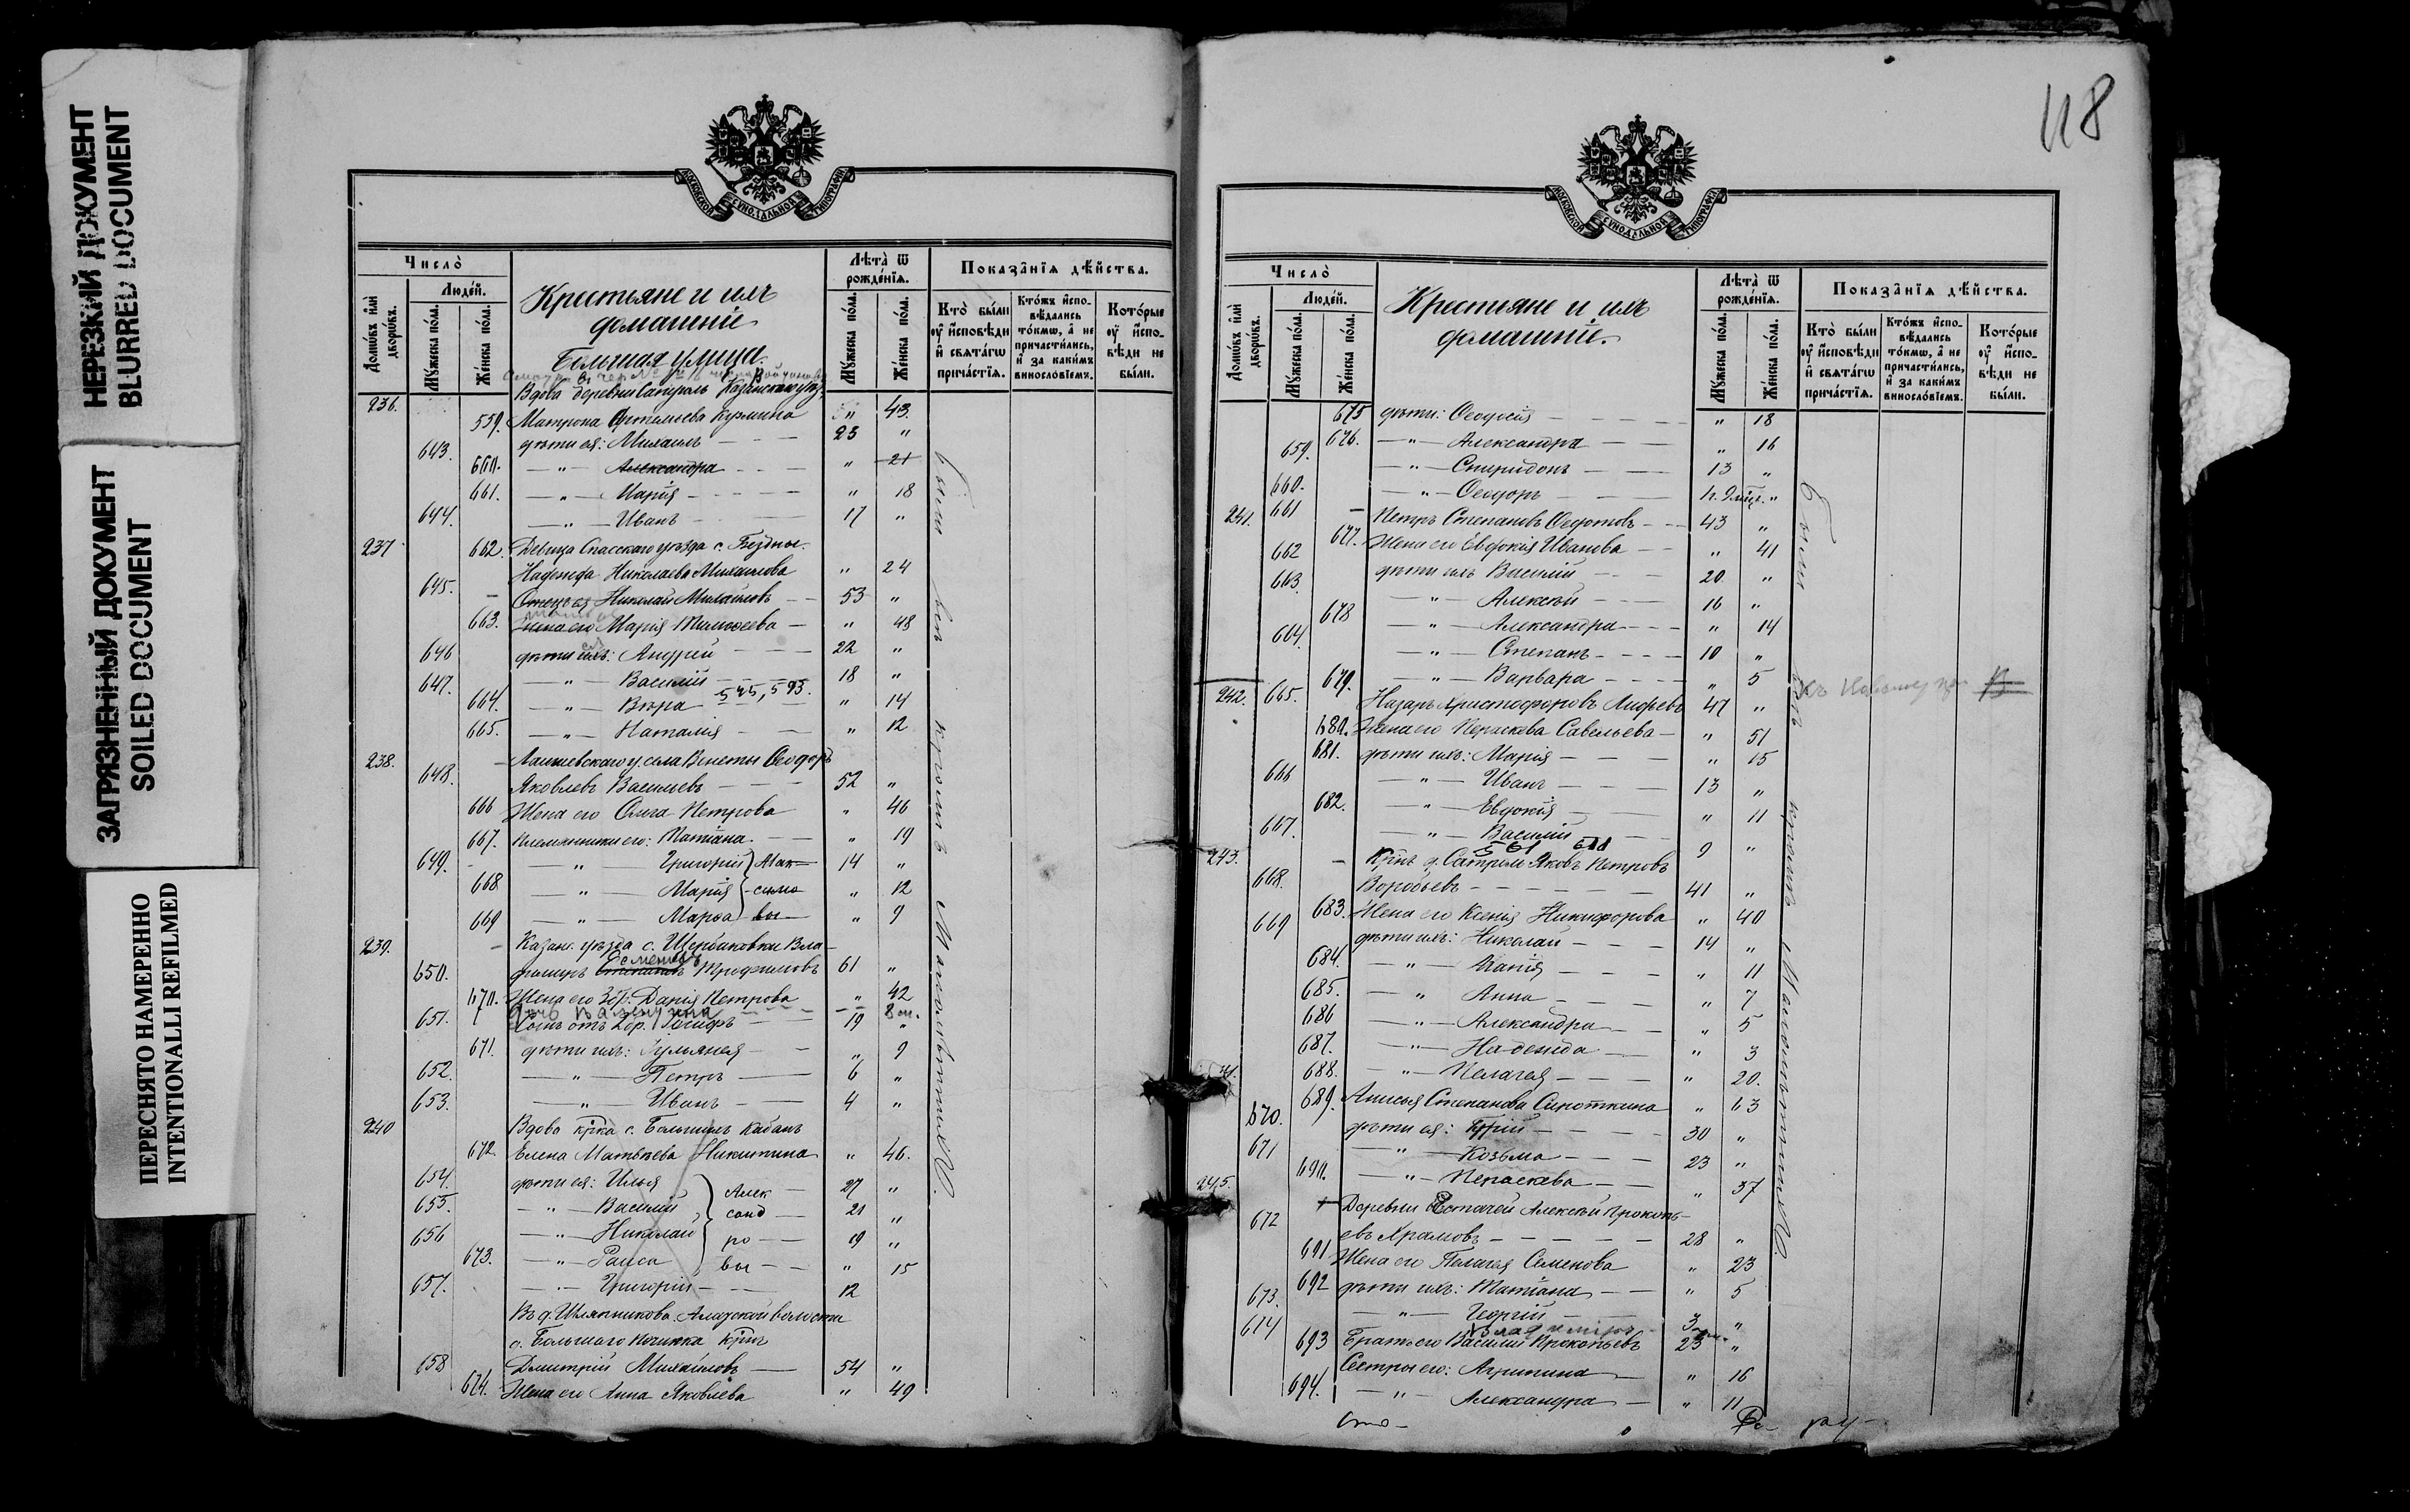 НЕРЕЗКИЙ ДОКУМЕНТ
BLURRED DOCUMENT
ЗАГРЯЗНЕННЫЙ ДОКУМЕНТ
SOILED DOCUMENT
ПЕРЕСНЯТО НАМЕРЕННО
INTENTIONALLI REFILMED
МОСКОВСКОЙ СѴНОДАЛЬНОЙ ТИПОГРАФІИ
Число̀
Домѡ́въ и҆лѝ дворѡ́въ.
Люде́й.
Мꙋ́жеска по́ла.
Же́нска по́ла.
Крестьяне и ихъ
домашніе
Большая улица.
Лѣта̀ ѿ рожде́нїѧ.
Мꙋ́жеска по́ла.
Же́нска по́ла.
Показа̑нїѧ дѣ́йства.
Кто̀ бы́ли ᲂу҆ и҆сповѣди и҆ свѧта́гѡ прича́стїѧ.
Кто́жъ и҆спо- вѣдались то́кмѡ, а҆ не причасти́лись, и҆ за каки́мъ винослові́емъ.
Кото́рые ᲂу҆ и҆спо- вѣди не бы́ли.
Вдова деревни Сапуголь Казанскаго уѣз.
236. 559. Матрона Артемьева Кузмина " 43.
643. дѣти ея: Михаилъ 23 "
660. — " — Александра " 21
661. — " — Марія " 18
644. — " — Иванъ 17 "
237 662. Девица Спасскаго уѣзда с. Бездны.
Надежда Николаева Михаилова " 24
645. Отец ея Николай Михайловъ 53 "
663. Жена его Марія Тимоѳеева " 48
646 дѣти ихъ: Андрей 22 "
647. — " — Василій 18 "
545, 593.
664. — " — Вѣра " 14
665. — " — Наталія " 12
238. Лаишевскаго у. села Винеты Ѳеодоръ
648. Яковлевъ Васильевъ 52 "
666 Жена его Ольга Петрова " 46
667. племянники его: Татіана " 19
649. — " — Григорій } Мак- 14 "
668 — " — Марія } симо " 12
669 — " — Марѳа } вы " 9
239. Казан. уѣзда с. Щербаковки Вла-
Семеновъ
650. диміръ Степановъ Трофимовъ 61 "
670. Жена его 3 бр. Дарія Петрова " 42
дочь Валентина 8 м.
651. Сынъ отъ 2 бр. Іосифъ 19 "
671. дѣти ихъ: Іульянея " 9
652. — " — Петръ 6 "
653. — " — Иванъ 4 "
240 Вдова кр-ка с. Большихъ Кабанъ
672. Елена Матвѣева Никитина " 46.
654. дѣти ея: Илья } Алек 27 "
655. — " — Василій } санд 21 "
656 — " — Николай } ро 19 "
673. — " — Раиса } вы " 15
657. — " — Григорій 12
Въ д. Шляпникова Алатской волости
д. Большаго Починка кр-нъ
658 Дмитрій Михайловъ 54 "
674. Жена его Анна Яковлева " 49
были всѣ кромѣ малолѣтнихъ.
118
МОСКОВСКОЙ СѴНОДАЛЬНОЙ ТИПОГРАФІИ
Число̀
Домѡ́въ и҆лѝ дворѡ́въ.
Люде́й.
Мꙋ́жеска по́ла.
Же́нска по́ла.
Крестьяне и ихъ
домашніе.
Лѣта̀ ѿ рожде́нїѧ.
Мꙋ́жеска по́ла.
Же́нска по́ла.
Показа̑нїѧ дѣ́йства.
Кто̀ бы́ли ᲂу҆ и҆сповѣди и҆ свѧта́гѡ прича́стїѧ.
Кто́жъ и҆спо- вѣдались то́кмѡ, а҆ не причасти́лись, и҆ за каки́мъ винослові́емъ.
Кото́рые ᲂу҆ и҆спо- вѣди не бы́ли.
675 дѣти: Ѳеодосія " 18
676. — " — Александра " 16
659. — " — Спиридонъ 13 "
660. — " — Ѳеодоръ 9 мѣс. "
241. 661 Петръ Степановъ Ѳедотовъ 43 "
677. Жена его Евдокія Иванова " 41
662 дѣти ихъ Василій 20 "
663. — " — Алексѣй 16 "
678 — " — Александра " 14
664. — " — Степанъ 10 "
679. — " — Варвара " 5
242. 665. Назаръ Христофоровъ Андреевъ 47 "
680. Жена его Параскева Савельева " 51
681. дѣти ихъ: Марія " 15
666 — " — Иванъ 13 "
682. — " — Евдокія " 11
667. — " — Василій 9 "
561 611
243. Кр-нъ д. Сапуголи Яковъ Петровъ
668. Воробьевъ 41 "
683. Жена его Ксенія Никифорова " 40
669 дѣти ихъ: Николай 14 "
684. — " — Марія " 11
685. — " Анна " 7
686 — " — Александра " 5
687. — " — Надежда " 3
688. — " — Пелагея " 20.
689. Анисья Степанова Сироткина " 63
670. дѣти ея: Юрій 30 "
671 — " — Козьма 23 "
690. — " — Параскева " 37
245. Деревни Естачей Алексѣй Прокопь-
672 евъ Храмовъ 28 "
691 Жена его Пелагея Семенова " 23
692 дѣти ихъ: Татіана " 5
673. — " — Георгій 3 "
Владиміръ
674 Братъ его Василій Прокопьевъ 23 "
693 Сестры его: Агрипина " 16
694. — " — Александра " 11
Были всѣ кромѣ малолѣтнихъ.